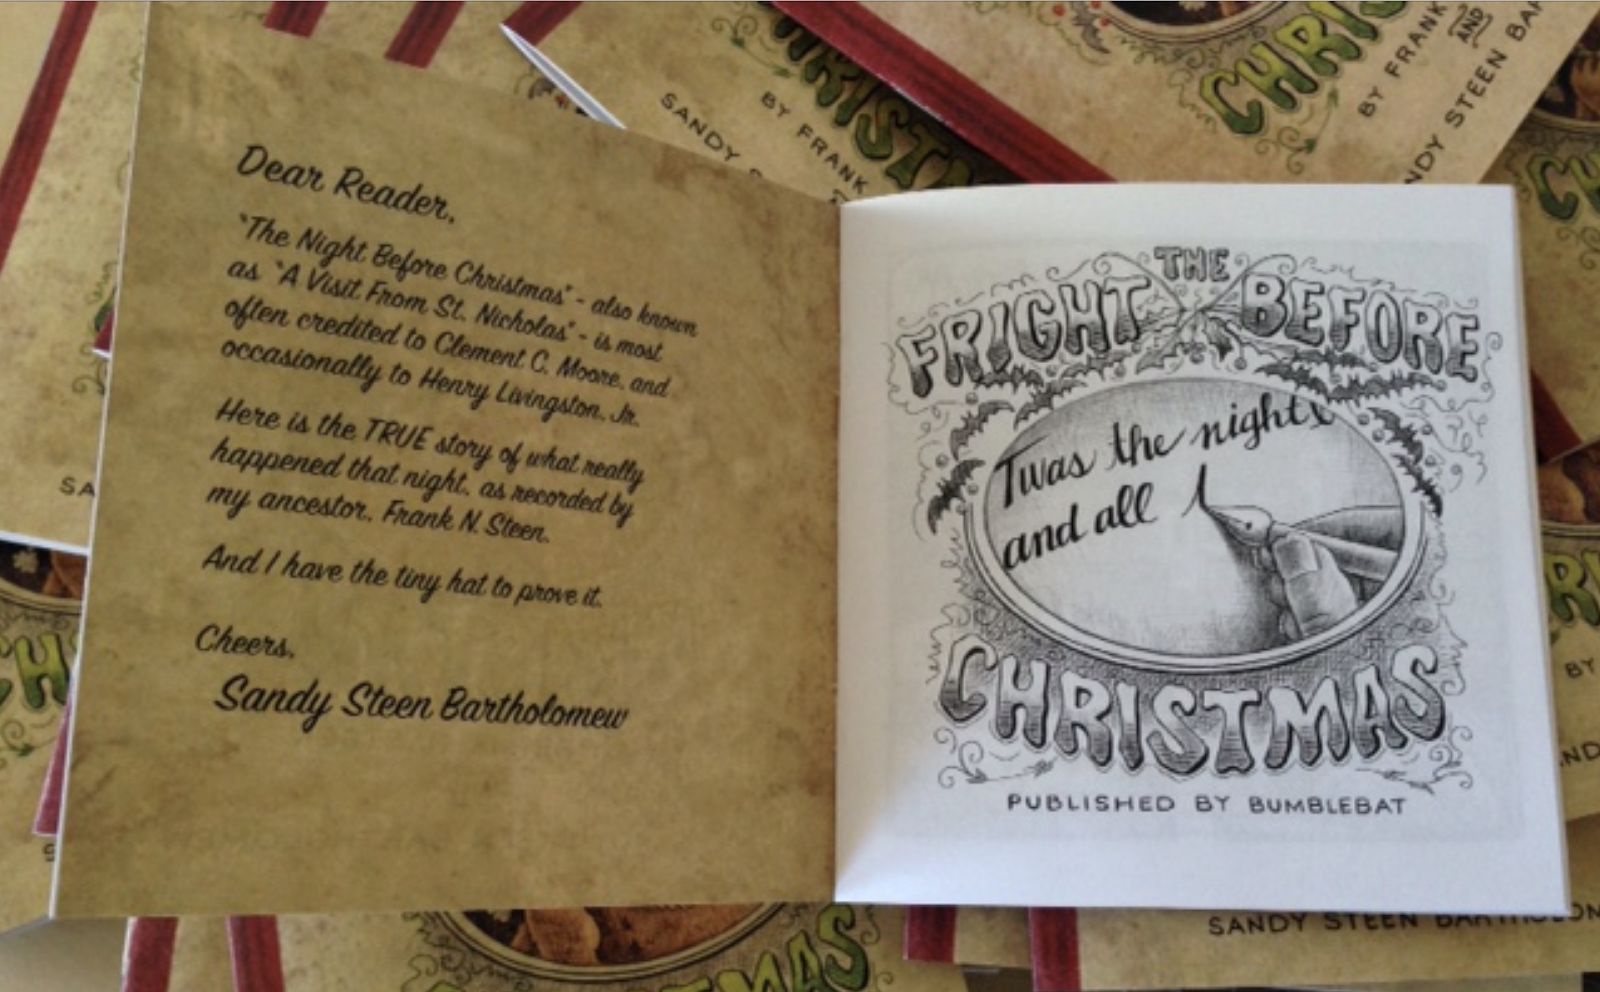 Dear Reader,
"The Night Before Christmas" - also known
as "A Visit From St. Nicholas" - is most
often credited to Clement C. Moore, and
occasionally to Henry Livingston, Jr.
Here is the TRUE story of what really
happened that night, as recorded by
my ancestor, Frank N. Steen.
And I have the tiny hat to prove it.
Cheers,
Sandy Steen Bartholomew
THE
FRIGHT BEFORE
Twas the night
and all
CHRISTMAS
PUBLISHED BY BUMBLEBAT
CHRIS
BY FRANK
AND
NDY STEEN BAR
CHRIST
BY FRANK
SANDY
SA
CH
TMAS
SANDY STEEN BARTHOLOM
CH
BY
ND